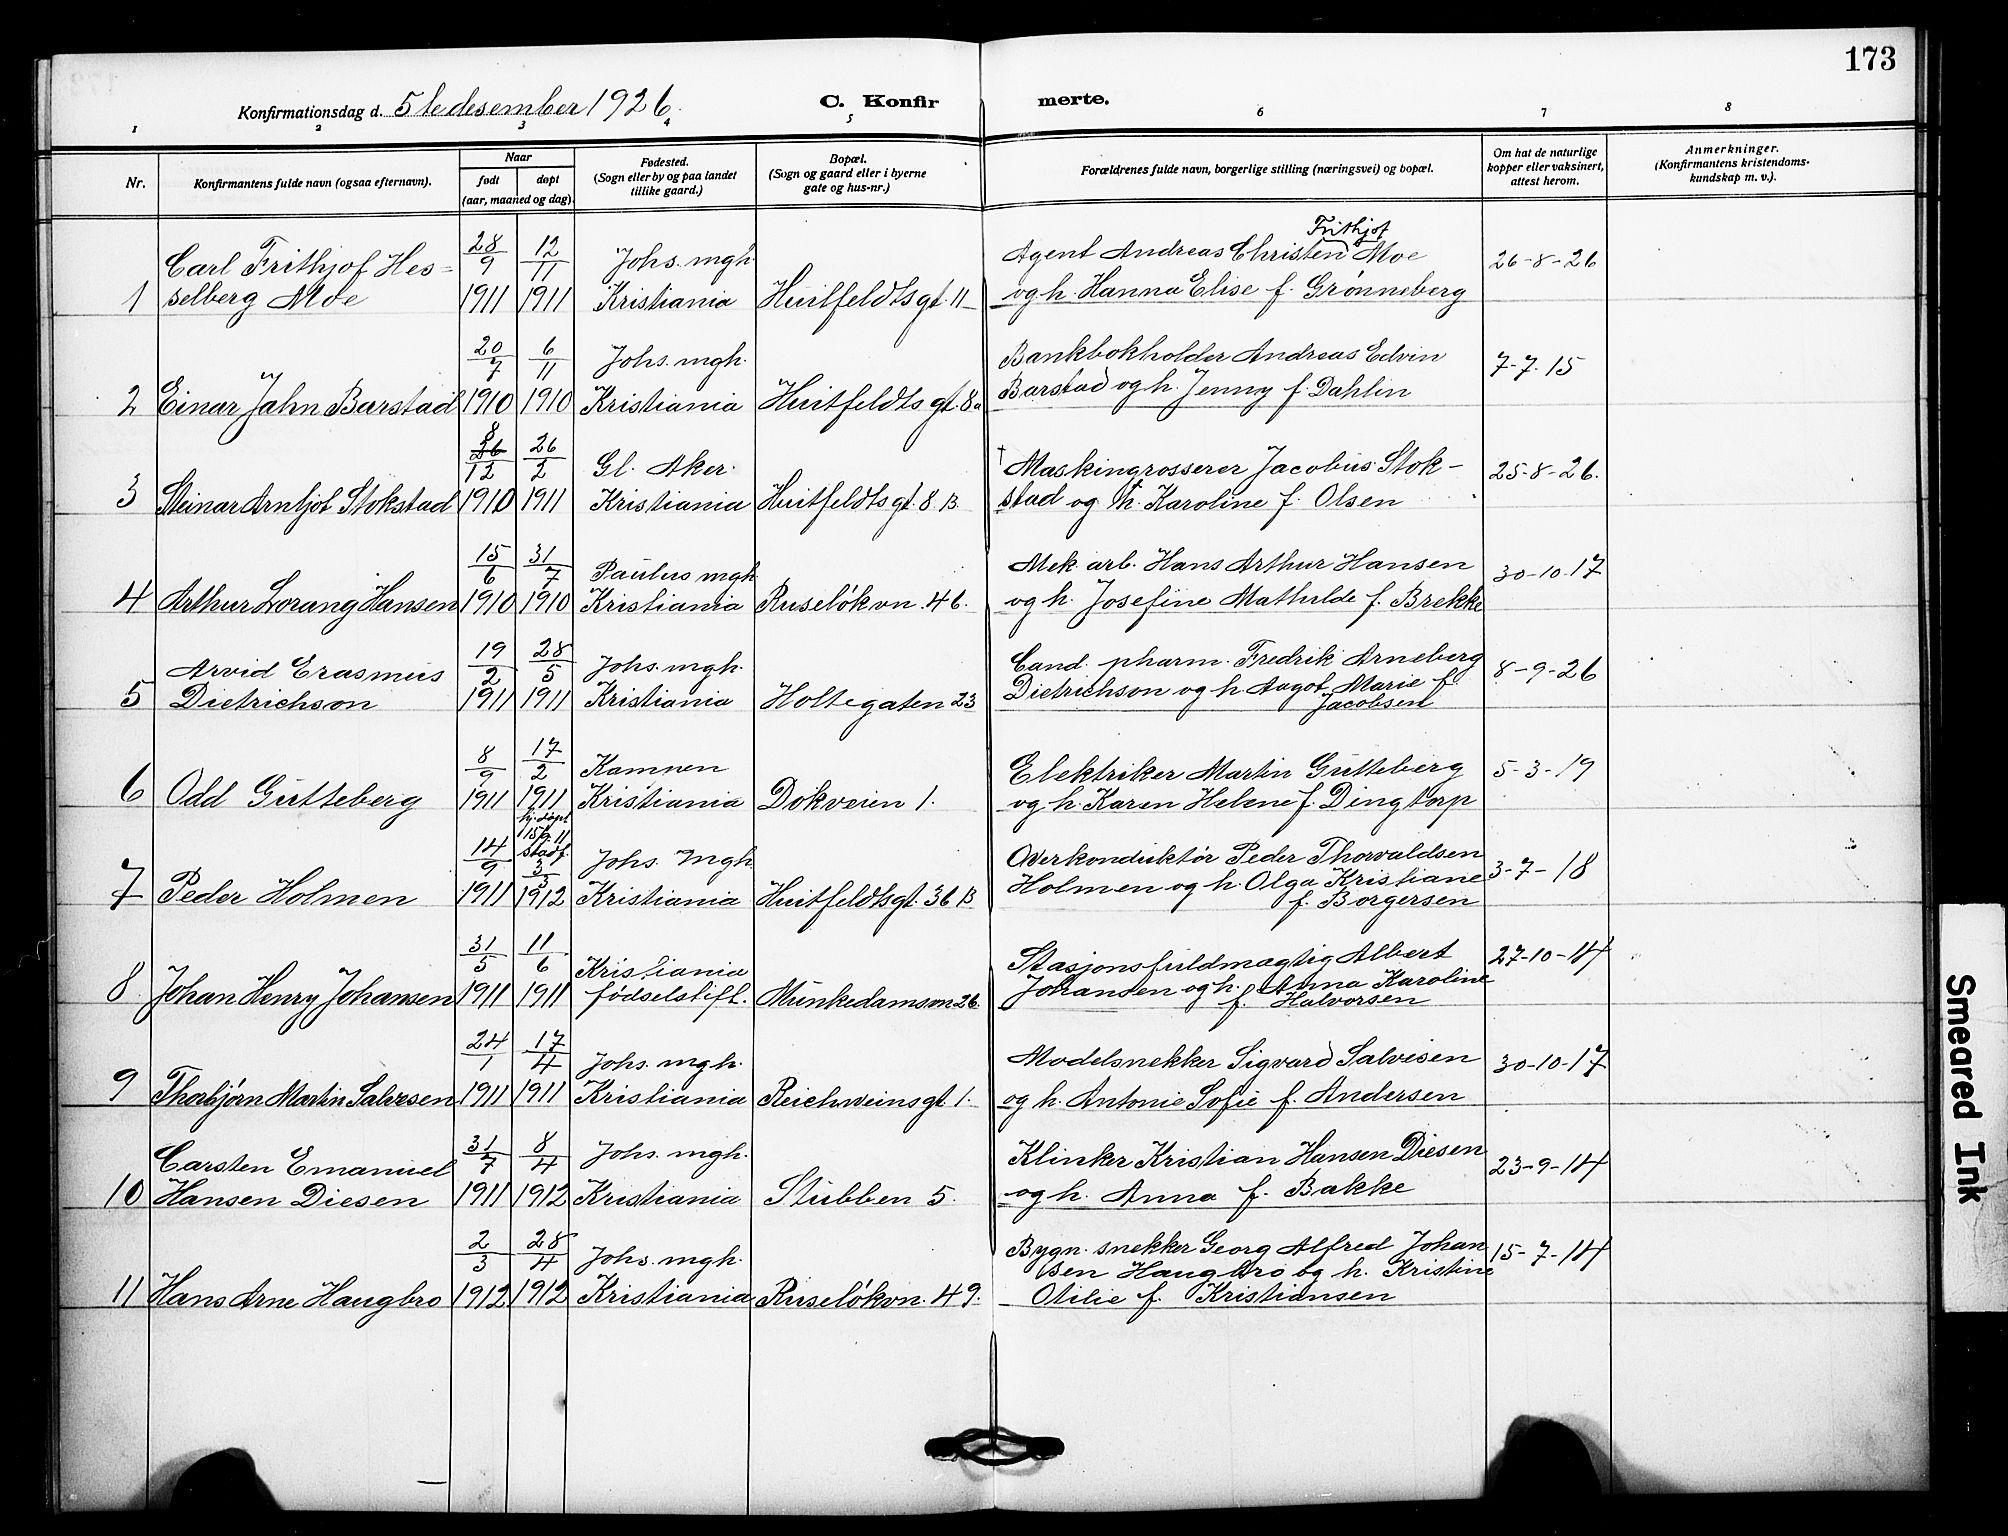 173
Konfirmationsdag d. 5te desember 1926.
C. Konfir merte.
1 2 3 4 5 6 7 8
Nr.
Konfirmantens fulde navn (ogsaa efternavn).
Naar
født
døpt
(aar, maaned og dag).
Fødested.
(Sogn eller by og paa landet
tillike gaard.)
Bopæl.
(Sogn og gaard eller i byerne
gate og hus-nr.)
Forældrenes fulde navn, borgerlige stilling (næringsvei) og bopæl.
Om hat de naturlige
kopper eller vaksinert,
attest herom.
Anmerkninger.
(Konfirmantens kristendoms-
kundskap m. v.).
Frithjof
Carl Frithjof Hes= 28/9 12/11 Johs. mgh. Agent Andreas Christen Moe 26-8-26
1 selberg Moe 1911 1911 Kristiania Huitfeldtsgt. 11 og h. Hanna Elise f. Grønneberg
20/7 6/11 Johs. mgh. Bankbokholder Andreas Edvin 7-7-15
2 Einar Jahn Barstad 1910 1910 Kristiania Huitfeldtsgt. 8a Barstad og h. Jenny f. Dahlin
8
26/12 26/2 Gl. Aker. † Maskingrosserer Jacobus Stok- 25-8-26.
3 Steinar Arntjot Stokstad 1910 1911 Kristiania Huitfeldtsgt. 8 B. stad og h. Karoline f. Olsen
15/6 31/7 Paulus mgh. Mek. arb. Hans Arthur Hansen 30-10-17
4 Arthur Lorang Hansen 1910 1910 Kristiania Ruseløkvn. 46. og h. Josefine Mathilde f. Brekke
Arvid Erasmus 19/2 28/5 Johs. mgh. Cand. pharm. Fredrik Arneberg 8-9-26
5 Dietrichson 1911 1911 Kristiania Holtegaten 23 Dietrichson og h. Aagot Marie f.
Jacobsen
8/9 17/2 Kampen Elektriker Martin Gutteberg 5-3-19
6 Odd Gutteberg 1911 1911 Kristiania Dokveien 1. og h. Karen Helene f. Dingtorp
hj. døpt
15/9 11
14/9 stadf. 3/3 Johs. Mgh. Overkonduktør Peder Thorvaldsen 3-7-18
7 Peder Holmen 1911 1912 Kristiania Huitfeldtsgt. 36 B Holmen og h. Olga Kristiane
f. Borgersen
31/5 11/6 Kristiania Stasjonsfuldmægtig Albert 27-10-14
8 Johan Henry Johansen 1911 1911 fødselstift. Munkedamsvn 26. Johansen og h. Anna Karoline
f. Halvorsen
24/1 17/4 Johs. mgh. Modelsnekker Sigvard Salvesen 30-10-17
9 Thorbjørn Martin Salvesen 1911 1911 Kristiania Reichweinsgt 1. og h. Antonie Sofie f. Andersen
Carsten Emanuel 31/7 8/4 Johs. mgh. Klinker Kristian Hansen Diesen 23-9-14
10 Hansen Diesen 1911 1912 Kristiania Stubben 5. og h. Anna f. Bakke
2/3 28/4 Johs. mgh. Bygn. snekker Georg Alfred Johan 15-7-14
sen Haugbro og h. Kristine
11 Hans Arne Haugbro 1912 1912 Kristiania Ruseløkvn. 49. Otilie f. Kristiansen
Smeared Ink